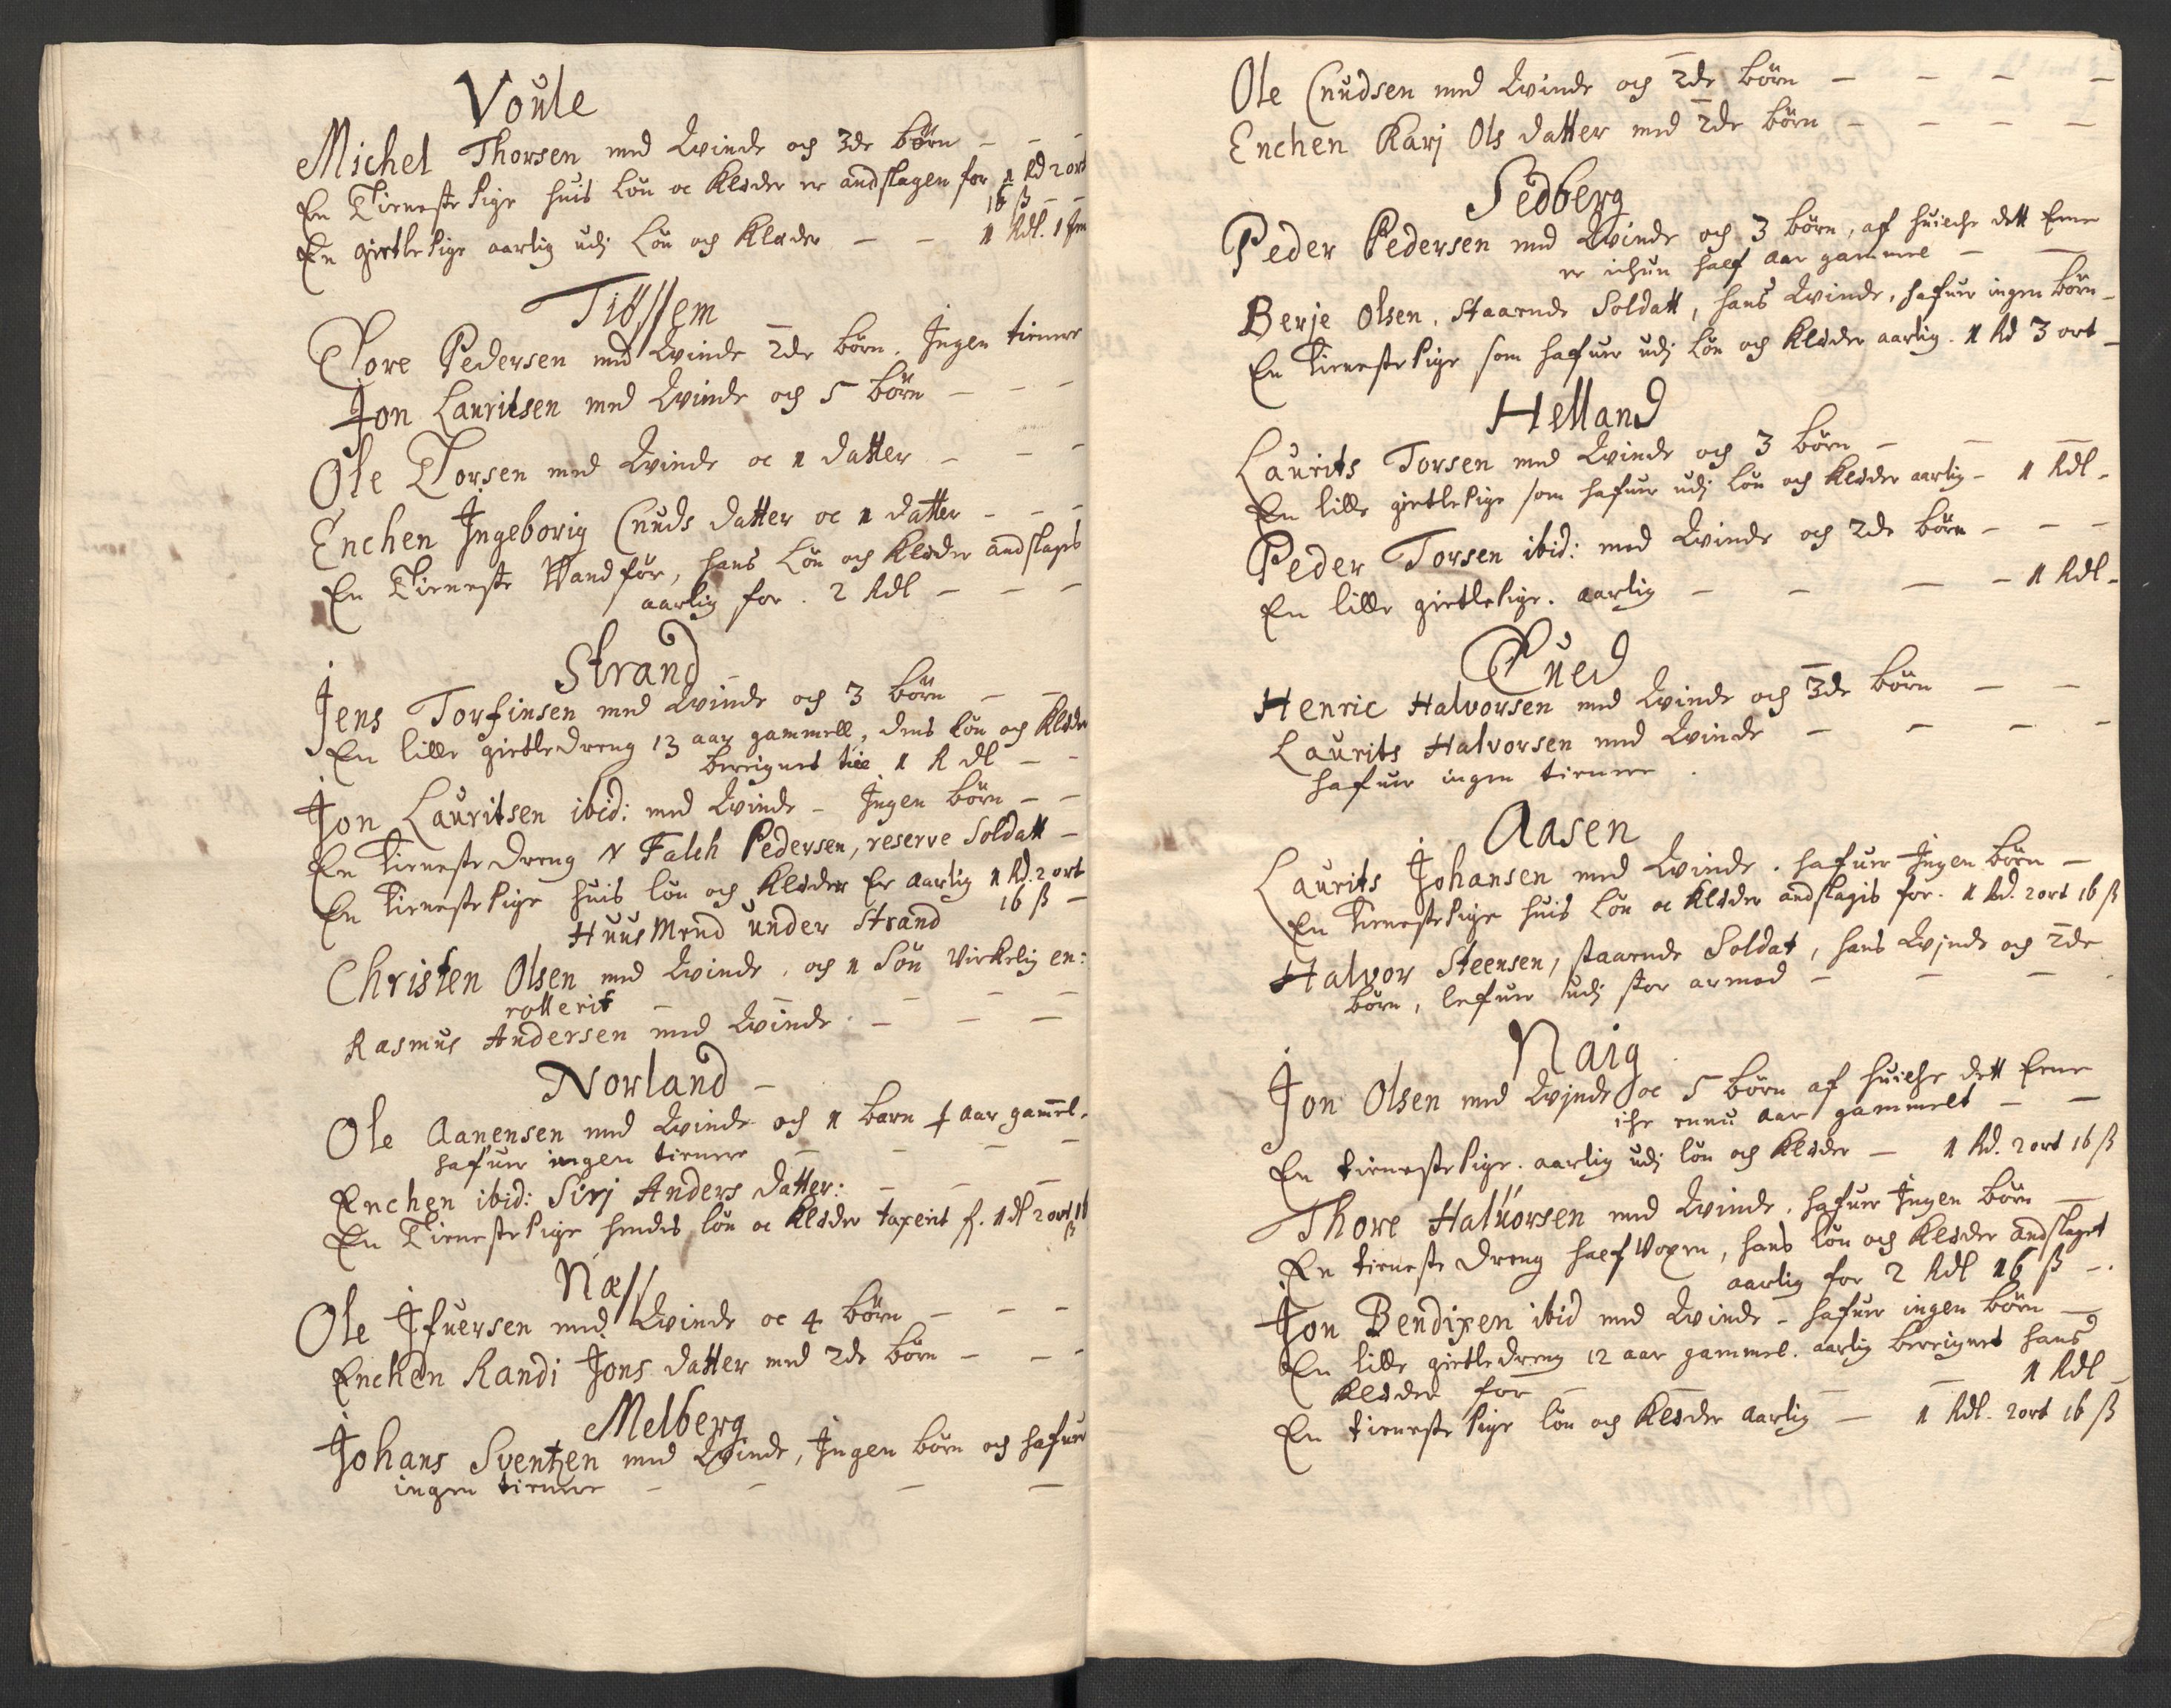 Voule
Michel Thorsen med Qvinde och 3de börn - - -
En Tieneste Pige huis Lön oc Kleder er andslagen for 1 Rd 2 ort
16 ß - -
En gietle Pige aarlig udj Lön och Kleder - - 1 Rdl. 1
Tiössem
Tore Pedersen med Qvinde 2de börn. Ingen tienere
Jon Lauritsen med Qvinde och 5 börn - - -
Ole Torsen med Qvinde oc 1 datter - - -
Enchen Ingeborig Cnuds datter oc 1 datter - - -
En Tieneste Wandför, hans Lön och Kleder andslages
aarlig for. 2 Rdl - - -
Strand
Jens Torfinsen med Qvinde och 3 börn - -
En lille gietledreng 13 aar gammell, dens Lön och Kleder
bereignet till 1 R dl - -
Jon Lauritsen ibid: med Qvinde - Ingen börn - -
En tienestedreng N Falch Pedersen, reserve Soldatt -
En tieneste Pige huis lön och Kleder Er aarlig 1 Rd. 2 ort
16 ß -
Huus Mend under Strand
Christen Olsen med Qvinde, och 1 Sön virkelig en:
rollerit - - - -
Rasmus Andersen med Qvinde. - - -
Norland -
Ole Aanensen med Qvinde och 1 barn 4 aar gammel.
hafuer ingen tienere - - - -
Enchen ibid: Sirj Anders datter: - - -
En Tieneste Pige hendes lön oc Kleder taxerit f. 1 dl 2 ort 16
ß
Næss
Ole Ifuersen med Qvinde oc 4 börn - - -
Enchen Randi Jons datter med 2de börn - - -
Melberg
Johans Sventzen med Qvinde, Ingen börn och hafuer
ingen tienere - - - -
Ole Cnudsen med Qvinde och 2de börn - - - -
Enchen Karj Ols datter med 2de börn - - - -
Sedberg
Peder Pedersen med Qvinde och 3 börn, af huilche dett Eene
er ichun half aar gammel - -
Berje Olsen, Staaende Soldatt, hans Qvinde, hafuer ingen börn -
En tieneste Pige som hafuer udj Lön och Kleder aarlig. 1 Rd 3 ort -
Helland
Laurits Torsen med Qvinde och 3 börn - - -
En lille gietle Pige som hafuer udj lön och Kleder aarlig - 1 Rdl -
Peder Torsen ibid: med Qvinde och 2de börn - - -
En lille gietle Pige. aarlig - - - - 1 Rdl -
Tued
Henric Halvorsen med Qvinde och 3de börn - -
Laurits Halvorsen med Qvinde - - - -
hafuer ingen tienere.
Aasen
Laurits Johansen med Qvinde. hafuer Ingen börn -
En tieneste Pige huis Lön oc Kleder andslagis for. 1 Rd. 2 ort 16 ß
Halvor Steensen, staaende Soldat, hans Qvinde och 2de
börn, lefuer udj stor armod - - - -
Naig
Jon Olsen med Qvinde oc 5 börn af huilche dett Eene
iche ennu aar gammelt - -
En tieneste Pige. aarlig udj lön och Kleder - 1 Rd. 2 ort 16 ß
Thore Haluorsen med Qvinde. hafuer Ingen börn -
En tieneste dreng half Voxen, hans lön och Kleder andslaget
aarlig for 2 Rdl 16 ß -.
Jon Bendixen ibid med Qvinde - hafuer ingen börn -
En lille gietledreng 12 aar gammel. aarlig bereignet hans
Kleder for - - - - 1 Rdl -
En tieneste Pige lön och Kleder aarlig - 1 Rdl. 2 ort 16 ß